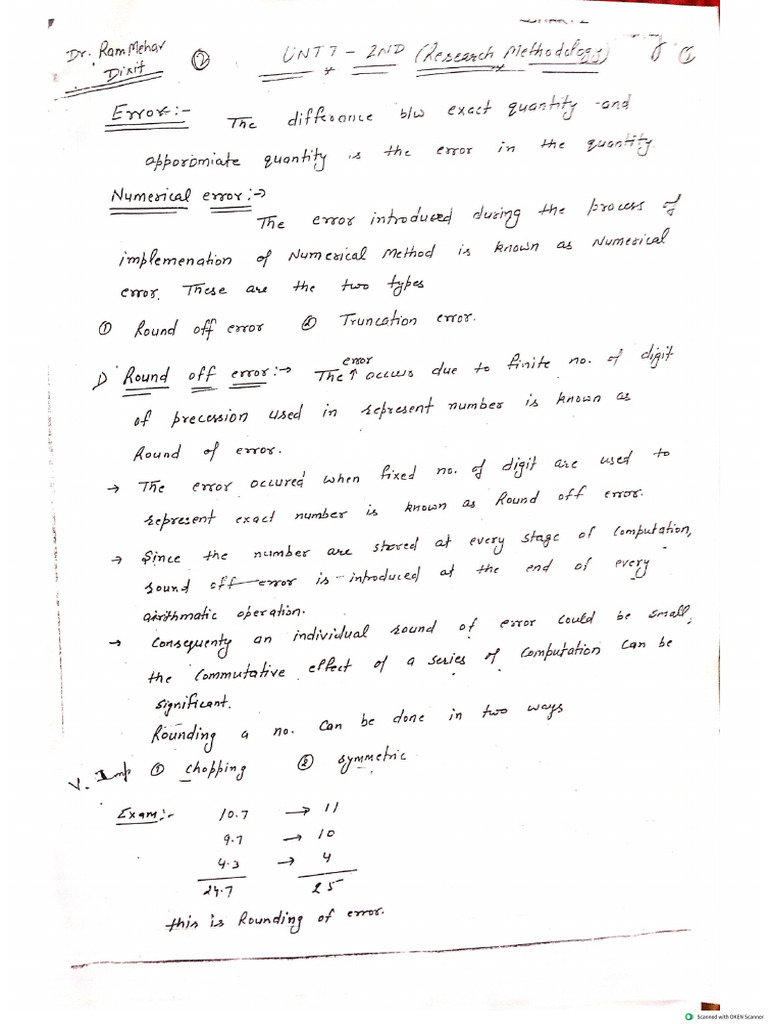 Dr. Ram Mehar
Dixit
②
UNIT - 2ND (Research Methodology)
①
Error:- The differance b/w exact quantity and
apporomiate quantity is the error in the quantity.
Numerical error:→
The error introduced during the process of
implemenation of Numerical Method is known as Numerical
error. These are the two types
① Round off error ② Truncation error.
1) Round off error:→ The ↑ error occurs due to finite no. of digit
of precession used in represent number is known as
Round of error.
→ The error occured when fixed no. of digit are used to
represent exact number is known as Round off error.
→ Since the number are stored at every stage of computation,
round off error is introduced at the end of every
airithmatic operation.
→ Consequenty an individual round of error could be small,
the Commutative effect of a series of computation can be
significant.
Rounding a no. can be done in two ways
V. Imp ① chopping ② symmetric
Exam:- 10.7 → 11
9.7 → 10
4.3 → 4
24.7 25
this is Rounding of error.
Scanned with OKEN Scanner